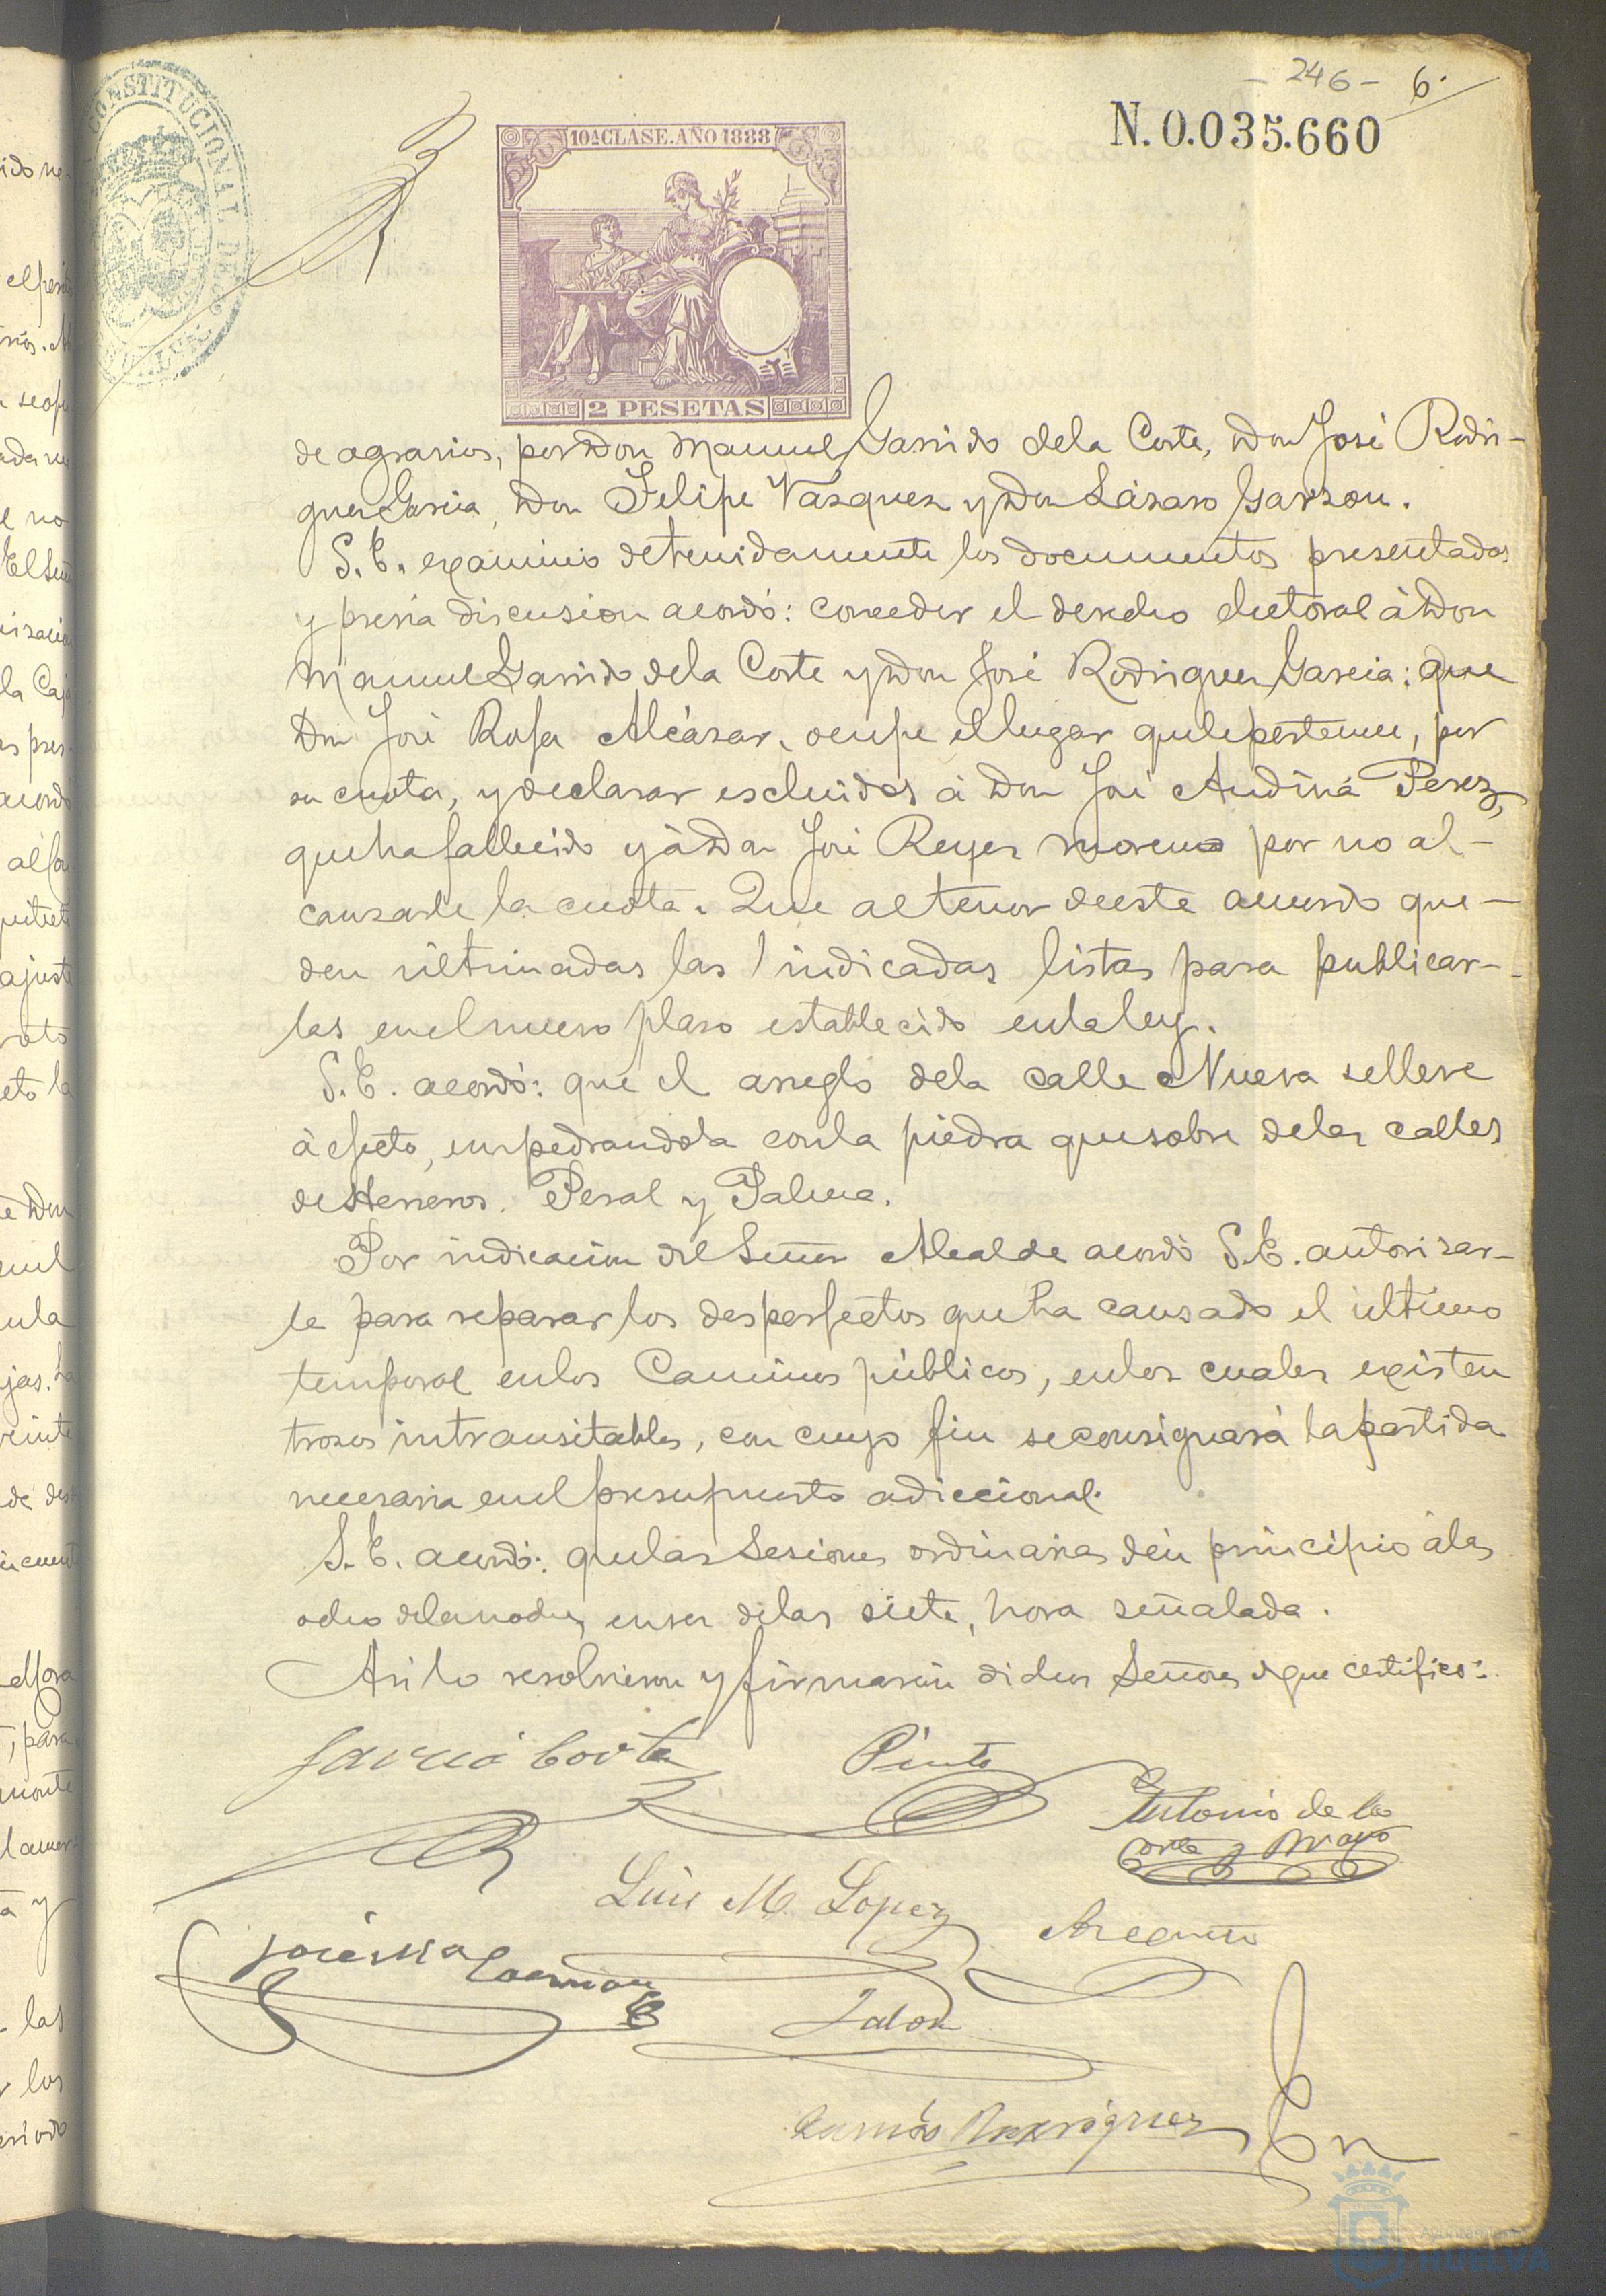 - 246 - 6.
N. 0.035.660
CONSTITUCIONAL DE
10ª CLASE. AÑO 1888
2 PESETAS
de agravios, por Don Manuel Garrido de la Corte, Don José Rodri-
guez Garcia, Don Felipe Vazquez y Don Lázaro Garzon.
S. E. examinó detenidamente los documentos presentados
y previa discusion acordó: conceder el derecho electoral à Don
Manuel Garrido de la Corte y Don José Rodriguez Garcia: que
Don José Rofa Alcázar, ocupe el lugar que le pertenece, por
su cuota, y declarar escluidos à Don José Audina Perez,
que ha fallecido y à Don José Reyes Moreno por no al-
canzarle la cuota. Que al tenor de este acuerdo que-
den ultimadas las indicadas listas para publicar-
las en el nuevo plazo establecido en la ley.
S. E. acordó: que el arreglo de la calle Nueva se lleve
à efecto, empedrandola con la piedra que sobre de las calles
de Herreros. Peral y Palma.
Por indicacion del Señor Alcalde acordó S. E. autorizar-
le para reparar los desperfectos que ha causado el último
temporal en los Caminos públicos, en los cuales existen
trozos intransitables, con cuyo fin se consignará la partida
necesaria en el presupuesto adiccional.
S. E. acordó: que las Sesiones ordinarias dén principio á las
ocho de la noche, en vez de las siete, hora señalada.
Asi lo resolvieron y firmarán dichos Señores de que certifico:
Garcia Corte
Pinto
Antonio de la
Corte y Bravo
Luis M. Lopez
José Mª
Jalon
Rodriguez
Ayuntamiento
HUELVA